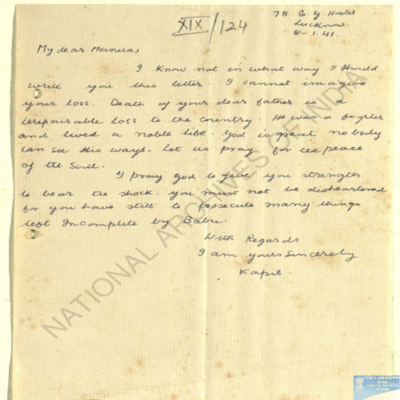 XIX/124
78 C. Y. Hostel
Lucknow.
8-1.41
My dear Munna,
I know not in what way I should
write you this letter. I cannot imagine
your loss. Death of your dear father is a
irrepairable loss to the country. He was a fighter
and lived a noble life. God is great no body
can see His ways. Let us pray for the peace
of the Soul.
I pray God to give you strengths
to bear the shock. You must not be disheartened
for you have still to prosecute many things
left Incomplete by Babu.
With Regards
I am yours Sincerely
Kapil.
NATIONAL ARCHIVES OF INDIA